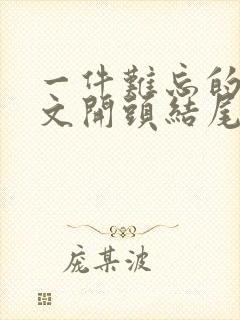 一件難忘的
文開頭結尾
庞某波